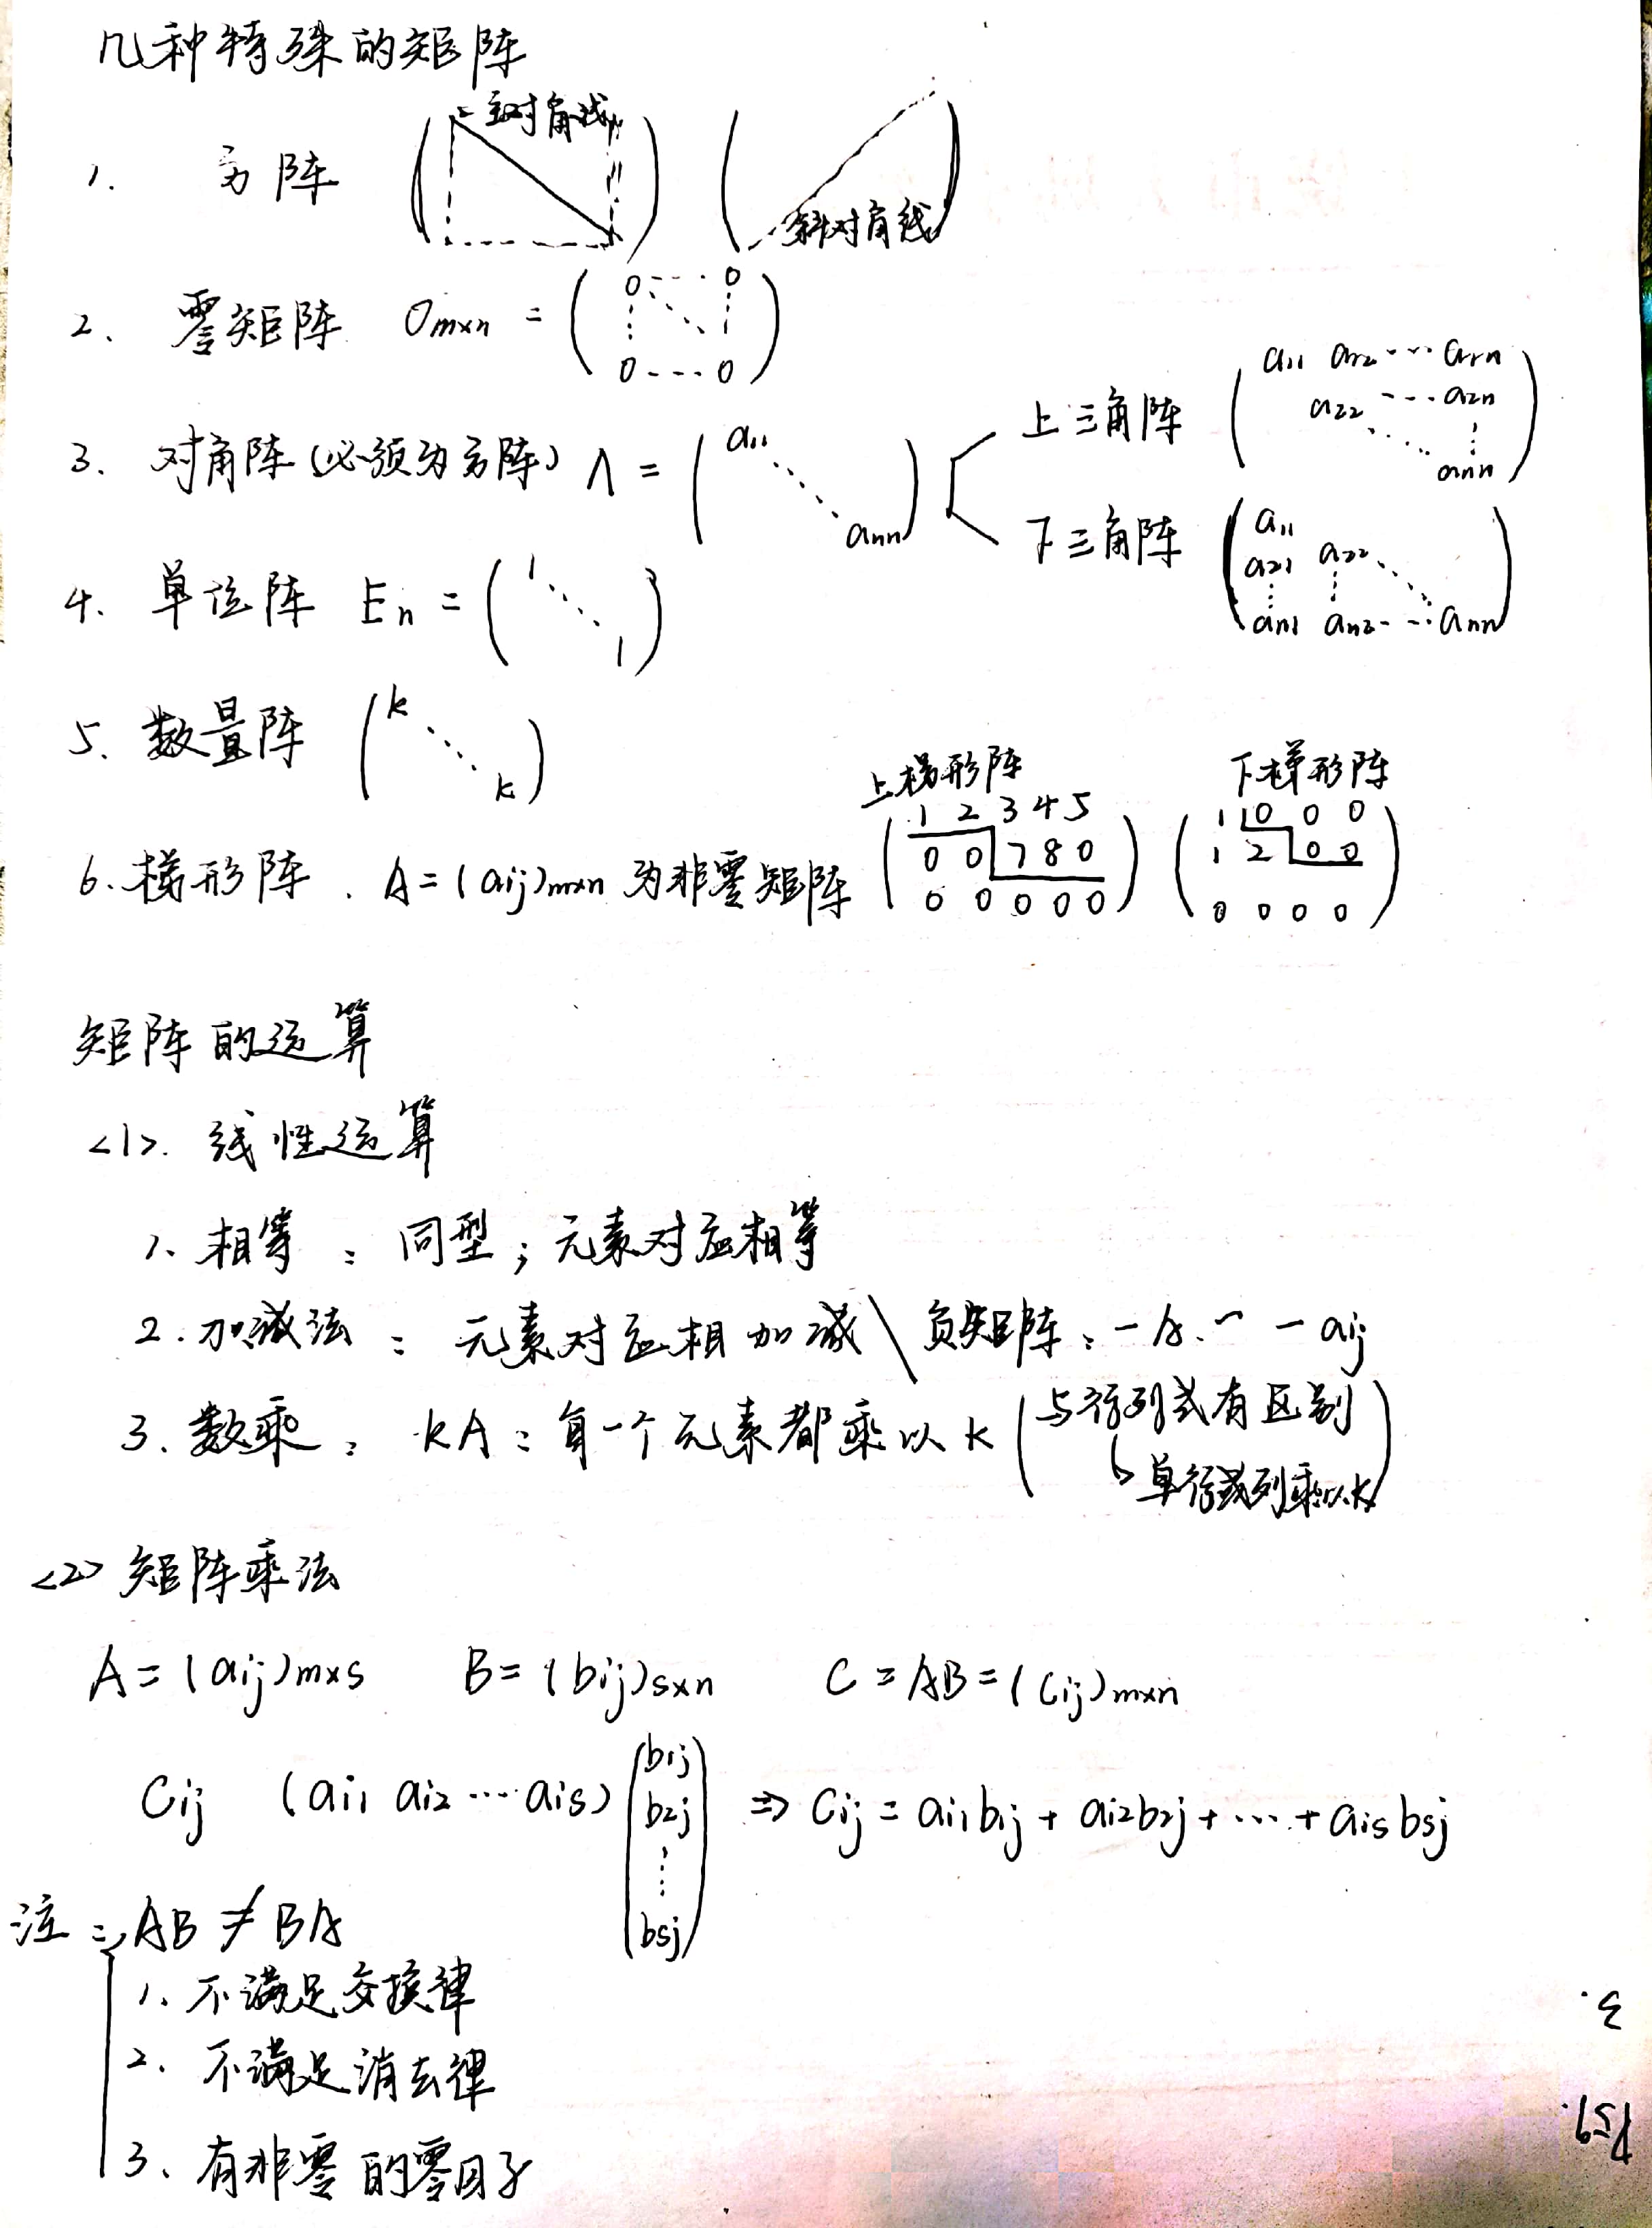 几种特殊的矩阵
1. 方阵 主对角线 斜对角线
2. 零矩阵 Om×n = ( 0 --- 0 ⋮ ⋱ ⋮ 0 --- 0 )
3. 对角阵(必须为方阵) Λ = ( a11 ⋱ ann )
上三角阵 ( a11 a12 ⋯ a1n
a22 ⋯ a2n
⋱ ⋮
ann )
下三角阵 ( a11
a21 a22
⋮ ⋮ ⋱
an1 an2 ⋯ ann )
4. 单位阵 En = ( 1 ⋱ 1 )
5. 数量阵 ( k ⋱ k )
6. 梯形阵. A = (aij)m×n 为非零矩阵
上梯形阵
1 2 3 4 5
0 0 7 8 0
0 0 0 0 0
下梯形阵
1 0 0 0
1 2 0 0
0 0 0 0
矩阵的运算
<1>. 线性运算
1. 相等: 同型; 元素对应相等
2. 加减法: 元素对应相加减 \ 负矩阵: -A. - aij
3. 数乘: kA: 每一个元素都乘以k (与行列式有区别
↳ 单行或列乘以k)
<2> 矩阵乘法
A = (aij)m×s B = (bij)s×n C = AB = (cij)m×n
Cij (ai1 ai2 ⋯ ais) ( b1j b2j ⋮ bsj ) ⇒ Cij = ai1b1j + ai2b2j + ⋯ + aisbsj
注: AB ≠ BA
1. 不满足交换律
2. 不满足消去律
3. 有非零的零因子
3.
P59.